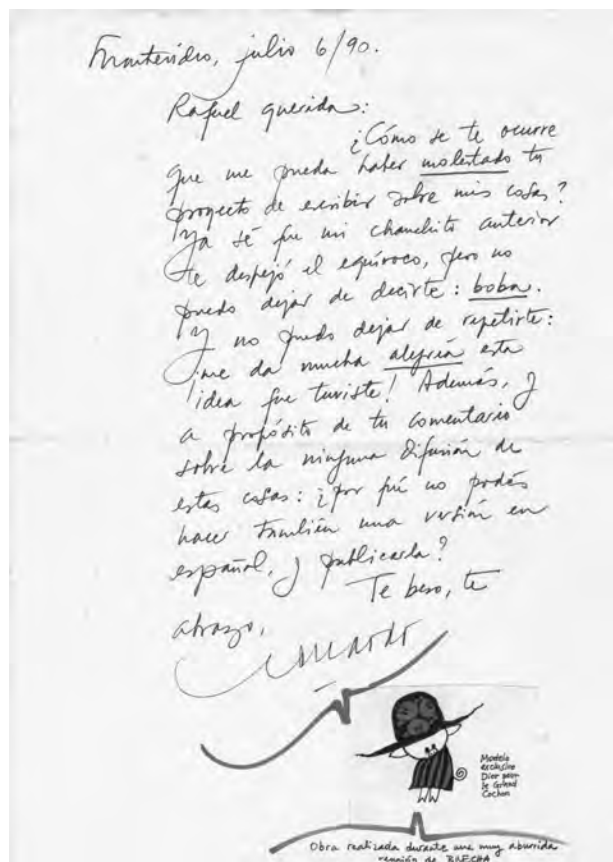 Montevideo, julio 6/90.
Rafuel querida:
¿Cómo se te ocurre
que me pueda haber molestado tu
proyecto de escribir sobre mis cosas?
Ya sé que mi chanchito anterior
te despejó el equívoco, pero no
puedo dejar de decirte: boba.
Y no puedo dejar de repetirte:
¡me da mucha alegría esta
idea que tuviste! Además, y
a propósito de tu comentario
sobre la ninguna difusión de
estas cosas: ¿por qué no podés
hacer también una versión en
español, y publicarla?
Te beso, te
abrazo,
Modelo
exclusivo
Dior pour
le Grand
Cochon
Obra realizada durante una muy aburrida
reunión de BRECHA